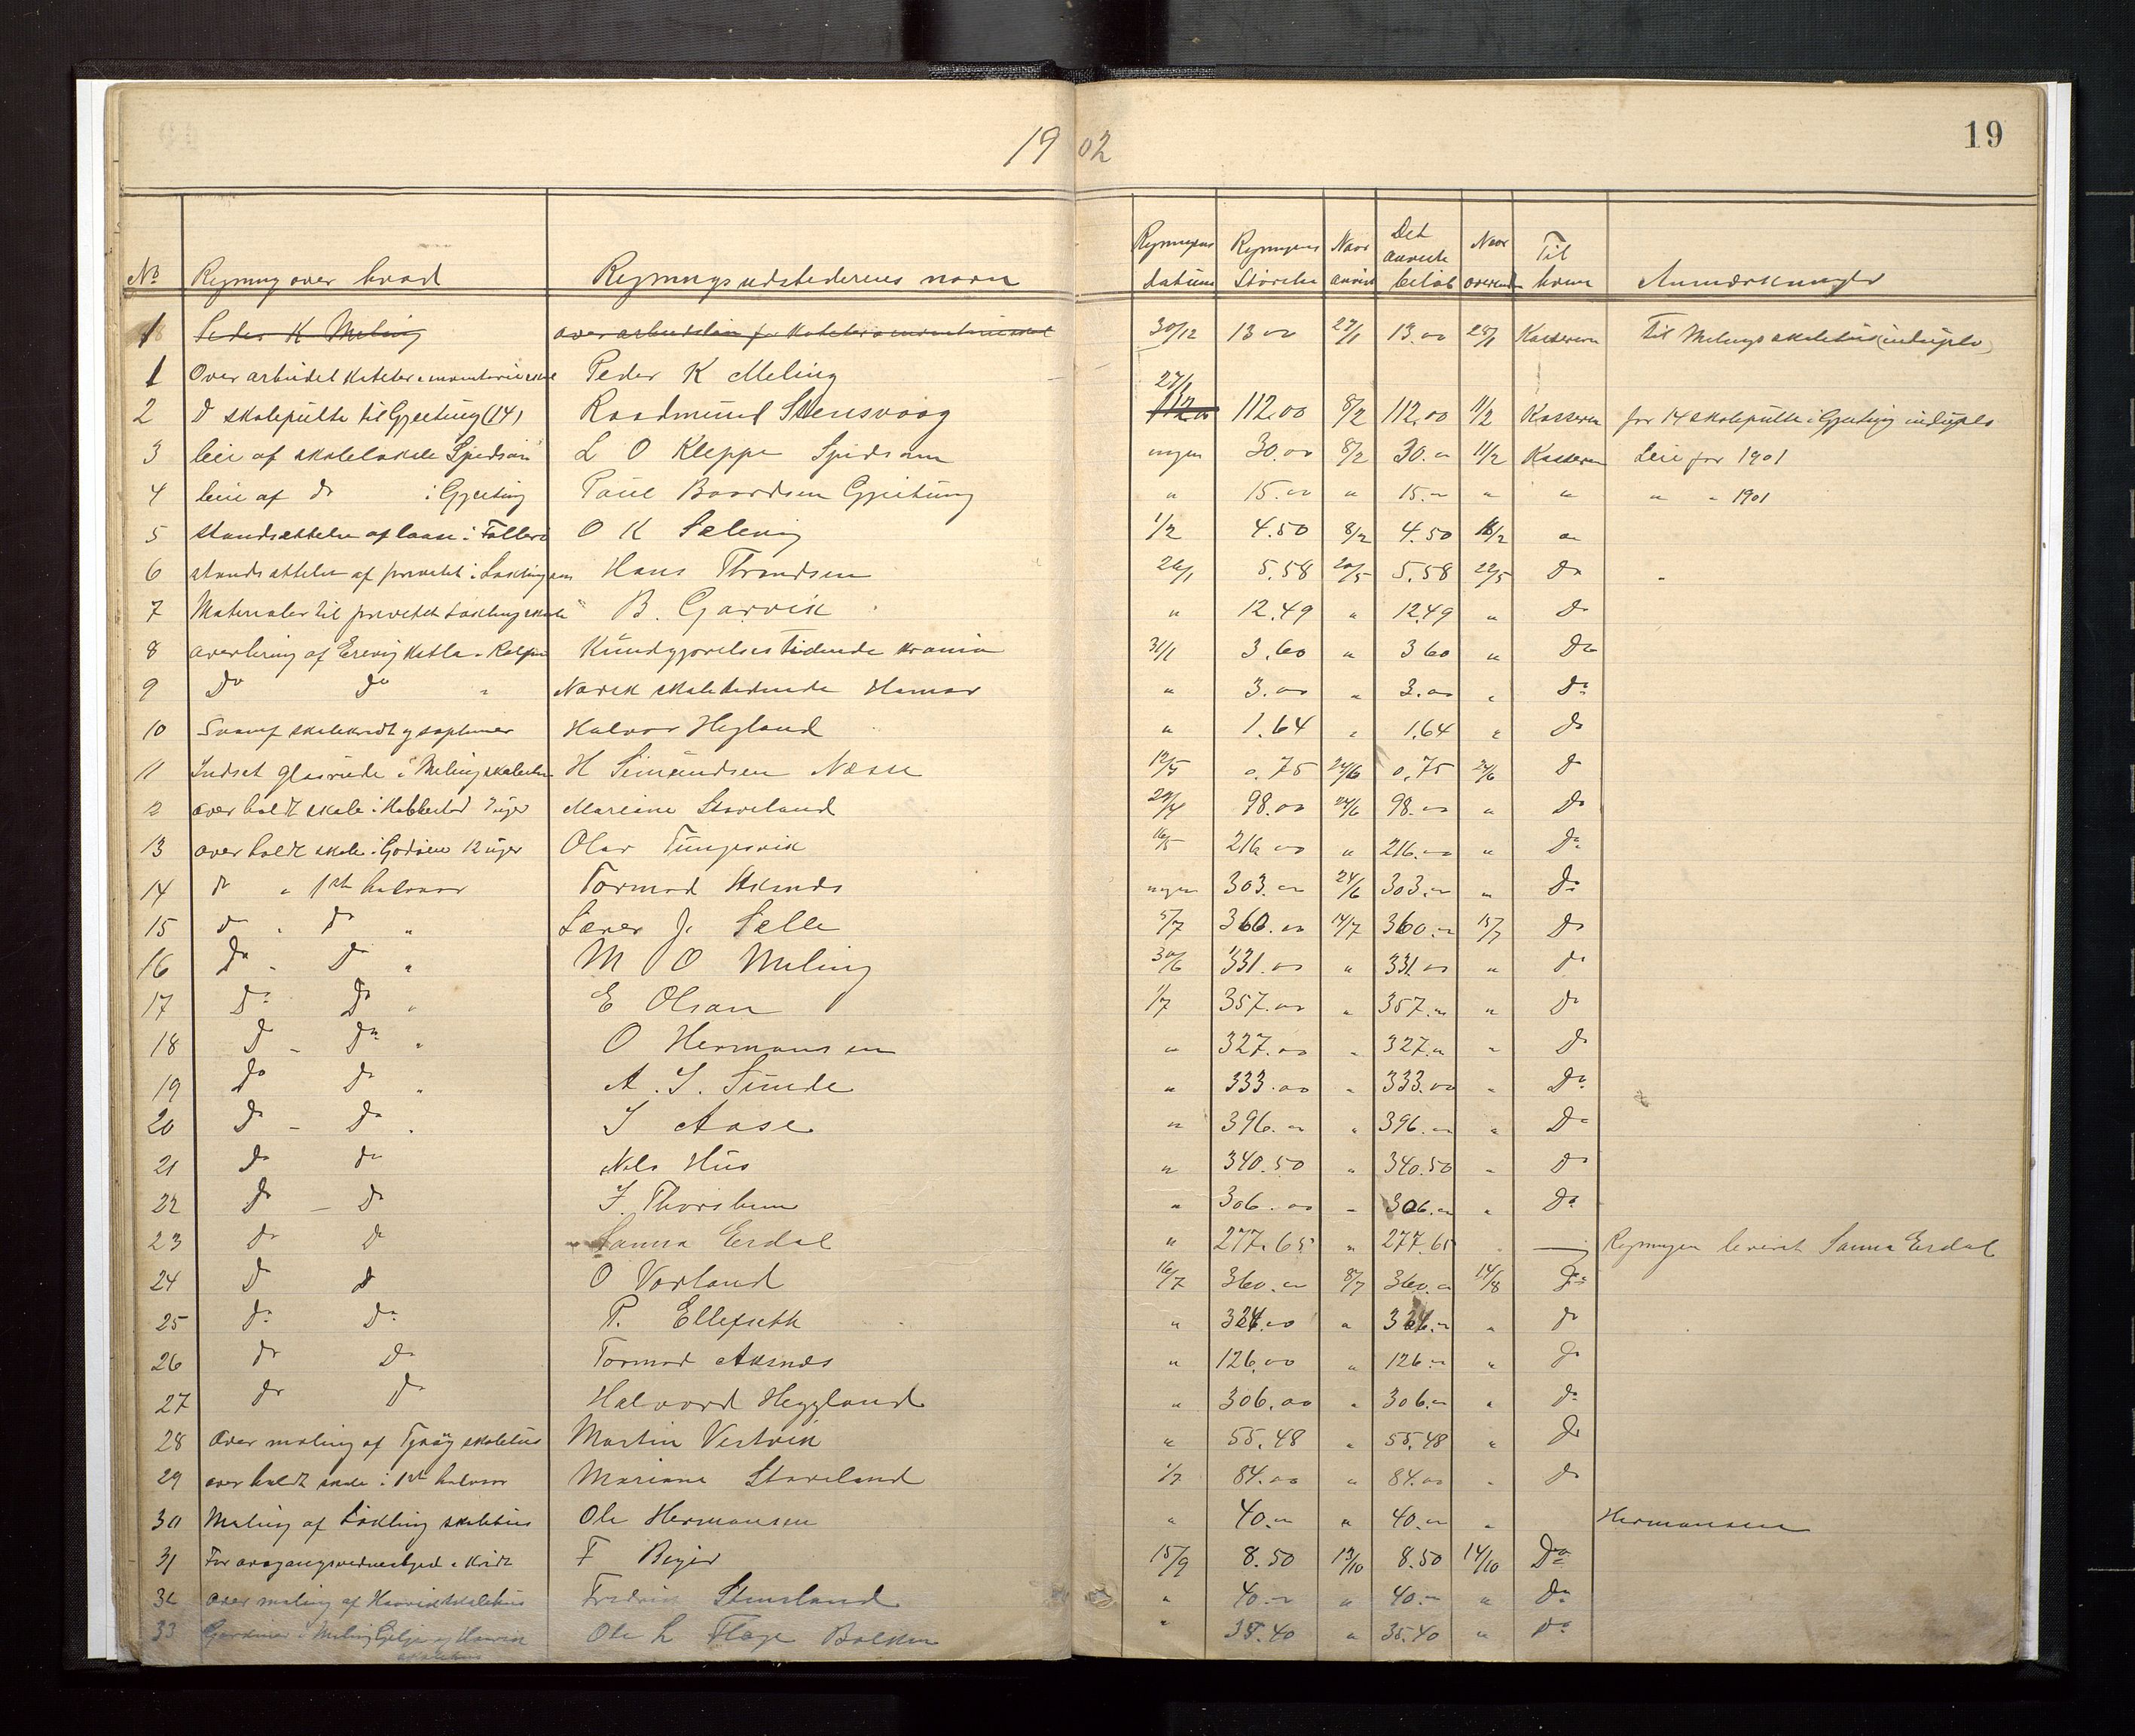 19 02
19
No Regning over hvad Regningsudstederens navn Regningens datum Regningens Størrelse Naar anvist Det anviste beløb Naar oversendt Til hvem Anmærkninger
1 Peder K Meling over arbeidsløn f. Kateter o inventarieskab 30/12 13 00 27/1 13.00 28/1 Kassereren Til Melings skolehus (induplo)
1 Over arbeidet Kateter o inventarieskab Peder K Meling
2 Do skolepulte til Gjeitung (14) Raadmund Stensvaag 27/1 112.00 112.00 8/2 112.00 11/2 Kasseren for 14 skolepulte i Gjeitung induplo
3 leie af skolelokale Spidsøen L O Kleppe Spidsøen ingen 30.00 8/2 30.00 11/2 Kasseren Leie for 1901
4 leie af do i Gjeitung Paul Baardsen Gjeitung " 15.00 " 15.00 " " " " 1901
5 istandsættelse af laase i Follesø O K Sælevig 1/2 4.50 8/2 4.50 11/2 "
6 istandsættelse af privetet i Løkling Hans Throndsen 26/1 5.58 20/5 5.58 22/5 Do
7 Materialer til privetet Løkling skole B. Gjervik " 12.49 " 12.49 " Do
8 avertering af Erevig Katla o Kundgjørelsestidende Krania 31/1 3.60 " 3 60 " Do
9 Do Do " Norsk skoletidende Hamar " 3.00 " 3.00 " Do
10 Svamp skolekridt og Halvor Hegland " 1.64 " 1.64 " Do
11 Indsat glasrude i Meling skolehus H Simundsen Næsse 12/5 0.75 24/6 0.75 24/6 Do
12 over holdt skole i Habbestad 7 uger Mariane Stoveland 29/4 98.00 24/6 98.00 " Do
13 over holdt skole i Godøen 12 uger Olav Tungesvik 16/5 216.00 " 216.00 " Do
14 do " 1ste halvaar Tormod Aksnes ingen 303.00 24/6 303.00 " Do
15 Do " Do " Lærer J. Sælle 5/7 360.00 14/7 360.00 15/7 Do
16 Do " Do " M O Meling 30/6 331.00 " 331.00 " Do
17 Do Do " E Olsen 1/7 357.00 " 357.00 " Do
18 Do - Do " O Hermansen " 327.00 " 327.00 " Do
19 Do Do " A. S. Sunde " 333.00 " 333.00 " Do
20 Do - Do " I Aase " 396.00 " 396.00 " Do
21 Do Do Nils Hus " 340.50 " 340.50 " Do
22 Do - Do I. Thorsheim " 306.00 " 306.00 " Do
23 Do Do Sanna Eisdal " 277.65 " 277.65 " — Regningen leveret Sanna Eisdal
24 Do Do O Varland 16/7 360.00 8/7 360.00 14/8 Do
25 Do Do P. Ellefseth " 324.00 " 324.00 " Do
26 Do Do Tormod Aksnes " 126.00 " 126.00 " Do
27 Do Do Halvord Heggland " 306.00 " 306.00 " Do
28 Over maling af skolehus Martin Vestvik " 55.48 " 55.48 " Do
29 over holdt skole i 1ste halvaar Mariane Stoveland 1/7 84.00 " 84.00 " Do
30 Maling af Løkling skolehus Ole Hermansen " 40.00 " 40.00 " Hermansen
31 For avgangsvidnesbyrd o kridt F Beyer 15/9 8.50 13/10 8.50 14/10 Do
32 over maling af Haavik skolehus Fredrik Stensland " 40.00 " 40.00 " Do
33 Gardiner i Meling og Haavik skolehus Ole L Flage Bolken " 35.40 " 35.40 " Do